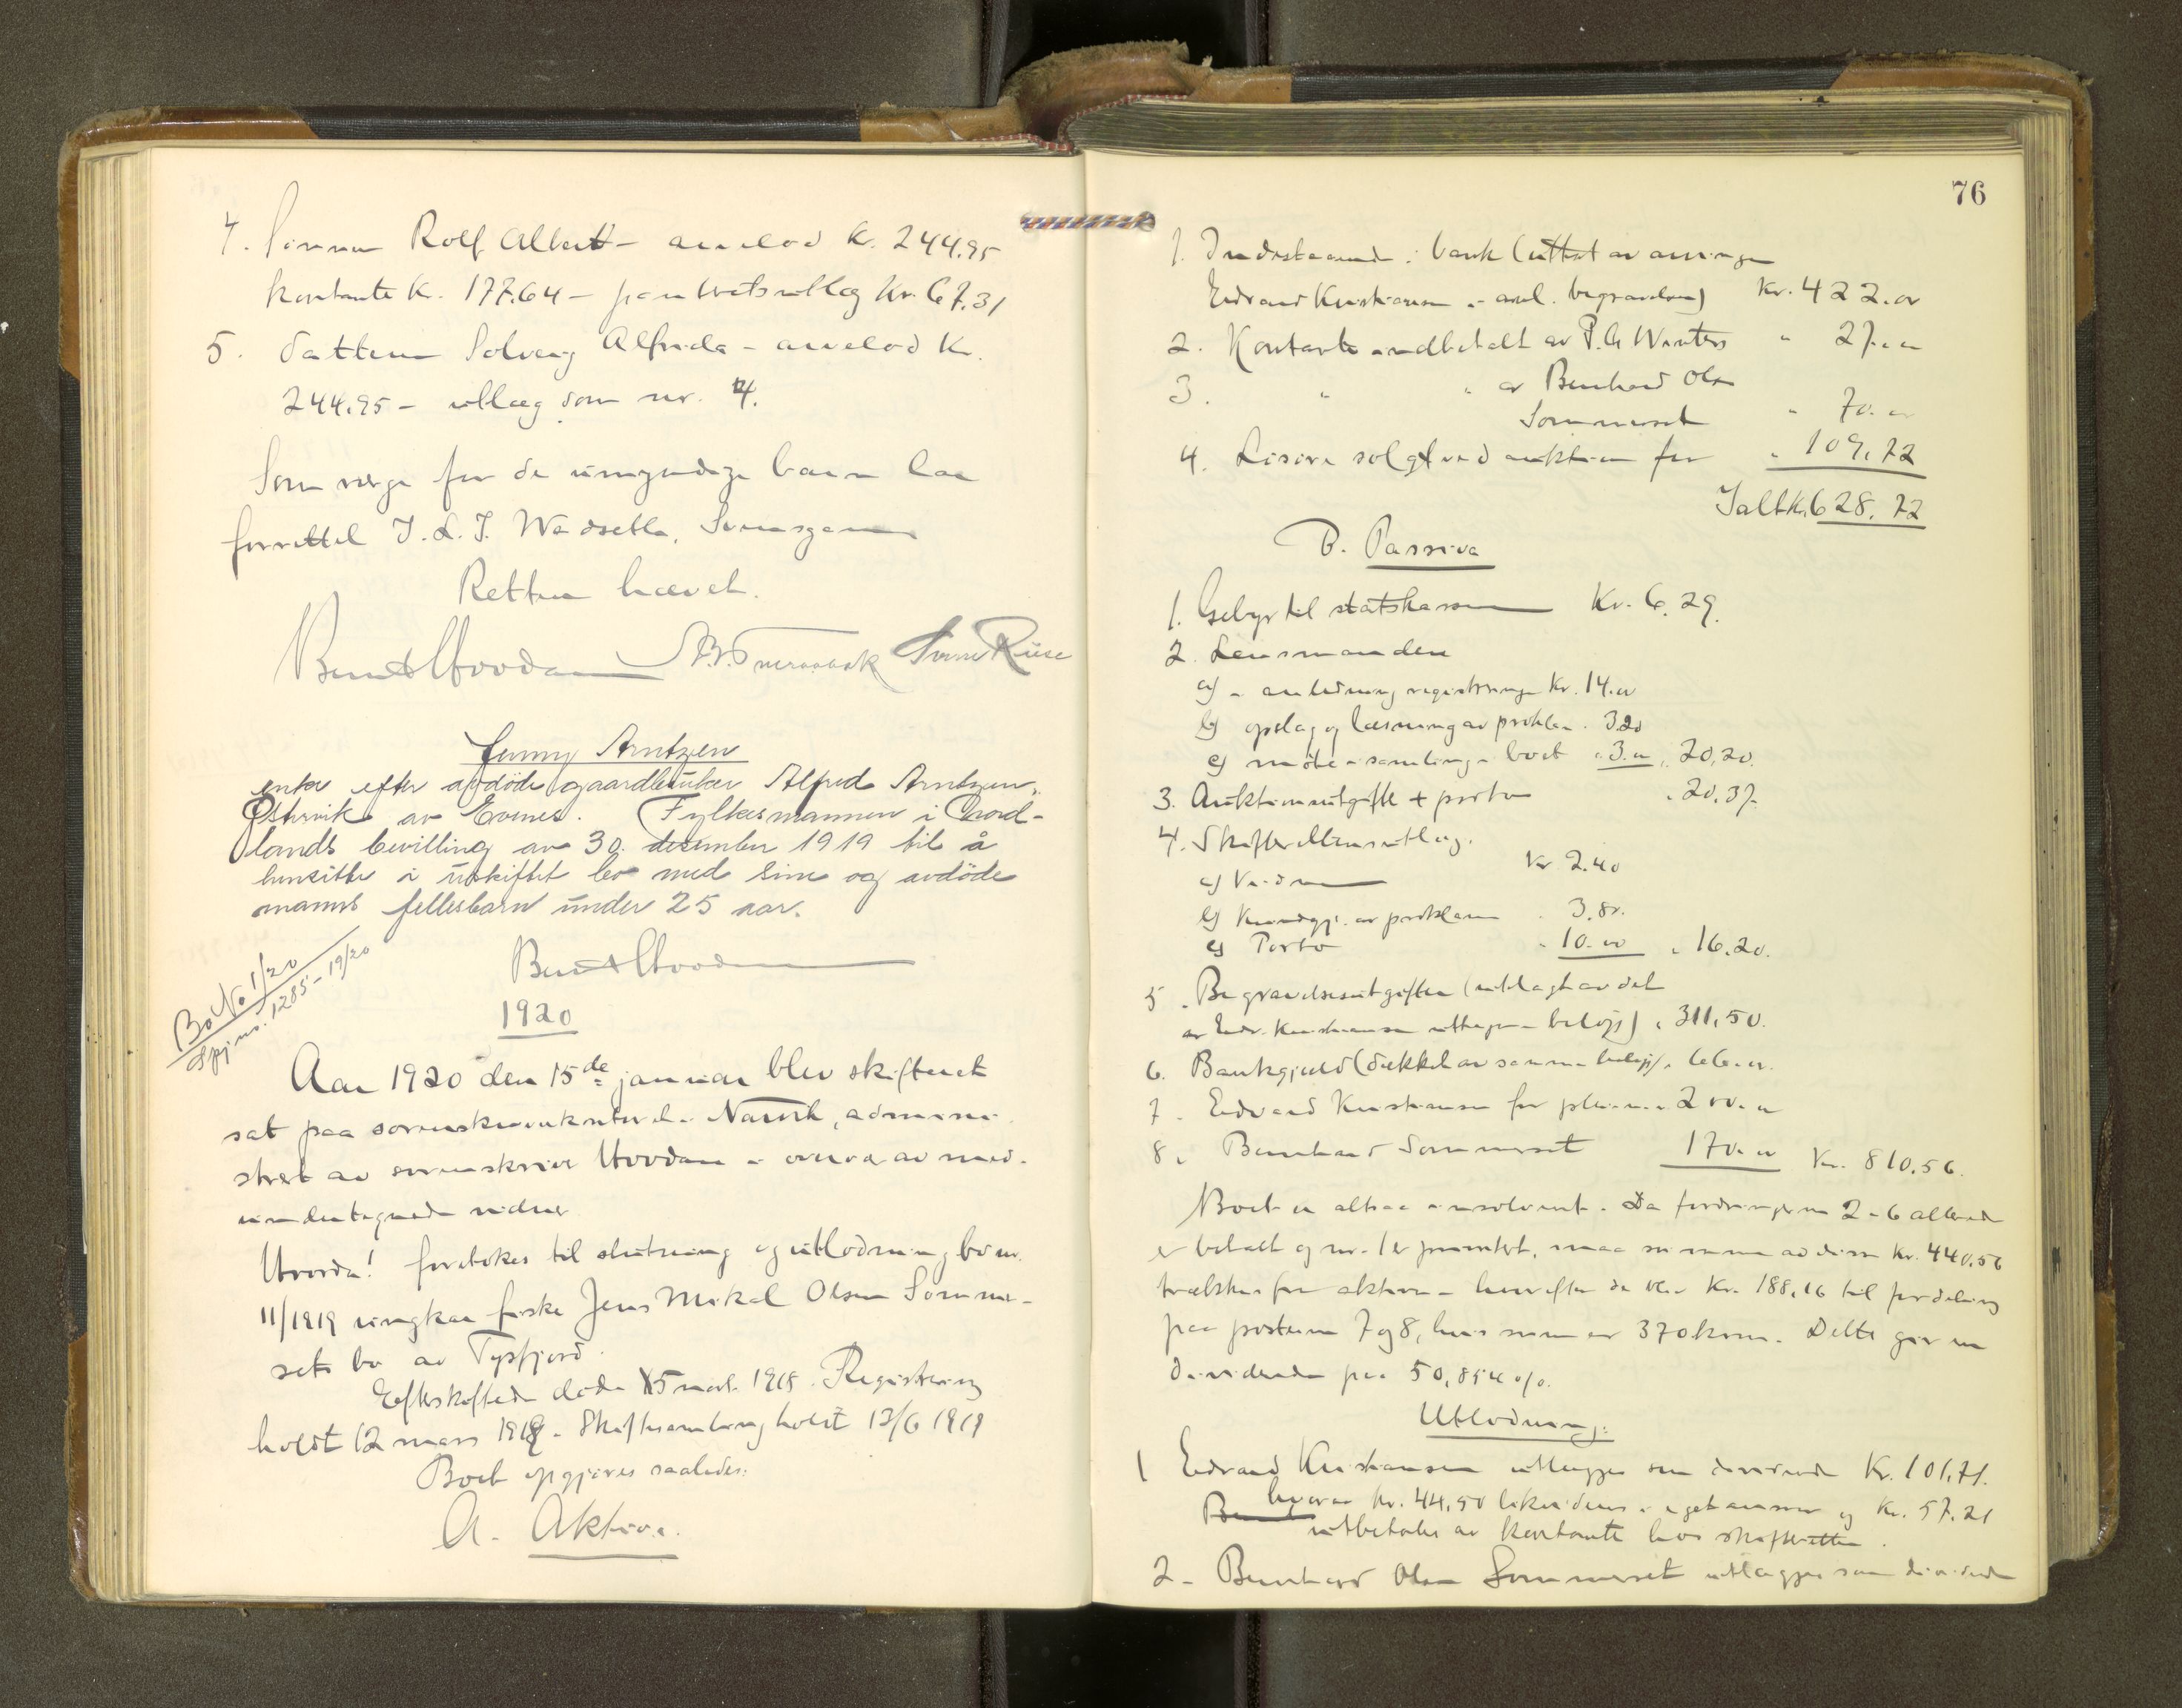 4. Sønnen Rolf Albert - arvelod Kr. 244,95
kontante Kr. 177,64 - panteretsutlæg Kr. 67,31
5. Datteren Solveig Alfrida - arvelod Kr.
244,95 - utlæg som nr. 4.
Som verge for de umyndige barn har
forrettet J. L. J. Wadsetha,
Retten hævet.
Bernt Hovdan
Jenny Arntzen
enke efter avdøde gaardbruker Alfred Arntzen,
Østervik av Evenes. Fylkesmannen i Nord-
lands bevilling av 30. desember 1919 til å
hensitte i uskiftet bo med sine og avdøde
manns fellesbarn under 25 aar.
Bernt Hovdan
Bo No 1/20
Spj. nr. 1285-19/20
1920
Aar 1920 den 15de januar blev skifteret
sat paa sorenskriverkontoret i Narvik, admini-
stret av sorenskriver Hovdan i overvær av med-
undertegnede vidner
Hvorda! foretokes til slutning og utlodning bo nr.
11/1919 ungkar fisker Jens Mikal Olsen Sommer-
sets bo av Tysfjord.
Efterskiftede døde 15 nov. 1918. Registrering
holdt 12 mars 1919. Skiftesamling holdt 13/6 1919
Boet opgjøres saaledes:
A. Aktiva.
76
1. Indestaaende i bank (uttat av arvingen
Edvard Kristiansen i anl. begravelsen) Kr. 422.00
2. Kontante indbetalt av P. A Winters " 27.00
3. " " av Bernhard Olsen
Sommerset " 70.00
4. Løsøre solgt ved auktion for " 109,72
Ialt Kr. 628,72
B. Passiva
1. Gebyr til statskassen Kr. 6.29.
2. Lensmanden
a) i anledning registrering Kr. 14.00
b) opslag og læsning av proklama . 3.20
c) møte i samling i boet " 3.00 " 20,20.
3. Auktionsutgifter + porto " 20,37.
4. Skifterettens utlæg.
a) Vidner Kr 2.40
b) Kundgj. av proklama . 3.80
c) Porto . 10.00 " 16.20.
5. Begravelsesutgifter (utlagt av det
av Edv. Kristiansen uttagne beløp) " 311,50.
6. Bankgjæld (dækket av samme beløp) " 66.00.
7. Edvard Kristiansen for pleie " 200.00
8. Bernhard Sommerset 170.00 Kr. 810.56.
Boet er altsaa insolvent. Da fordringerne 2-6 allerede
er betalt og nr. 1 er prioritert, maa summen av disse Kr. 440,56
trækkes fra aktiva - hvorefter da blir Kr. 188,16 til fordeling
paa posterne 7 og 8, hvis sum er 370 kron. Dette gir en
dividende paa 50,854 o/o.
Utlodning:
1 Edvard Kristiansen utlægges som dividende Kr. 101,71.
hvorav Kr. 44,50 likvideres i eget ansvar og Kr. 57.21
utbetales av kontante hos skifteretten.
2 - Bernhard Olsen Sommerset utlægges som dividende